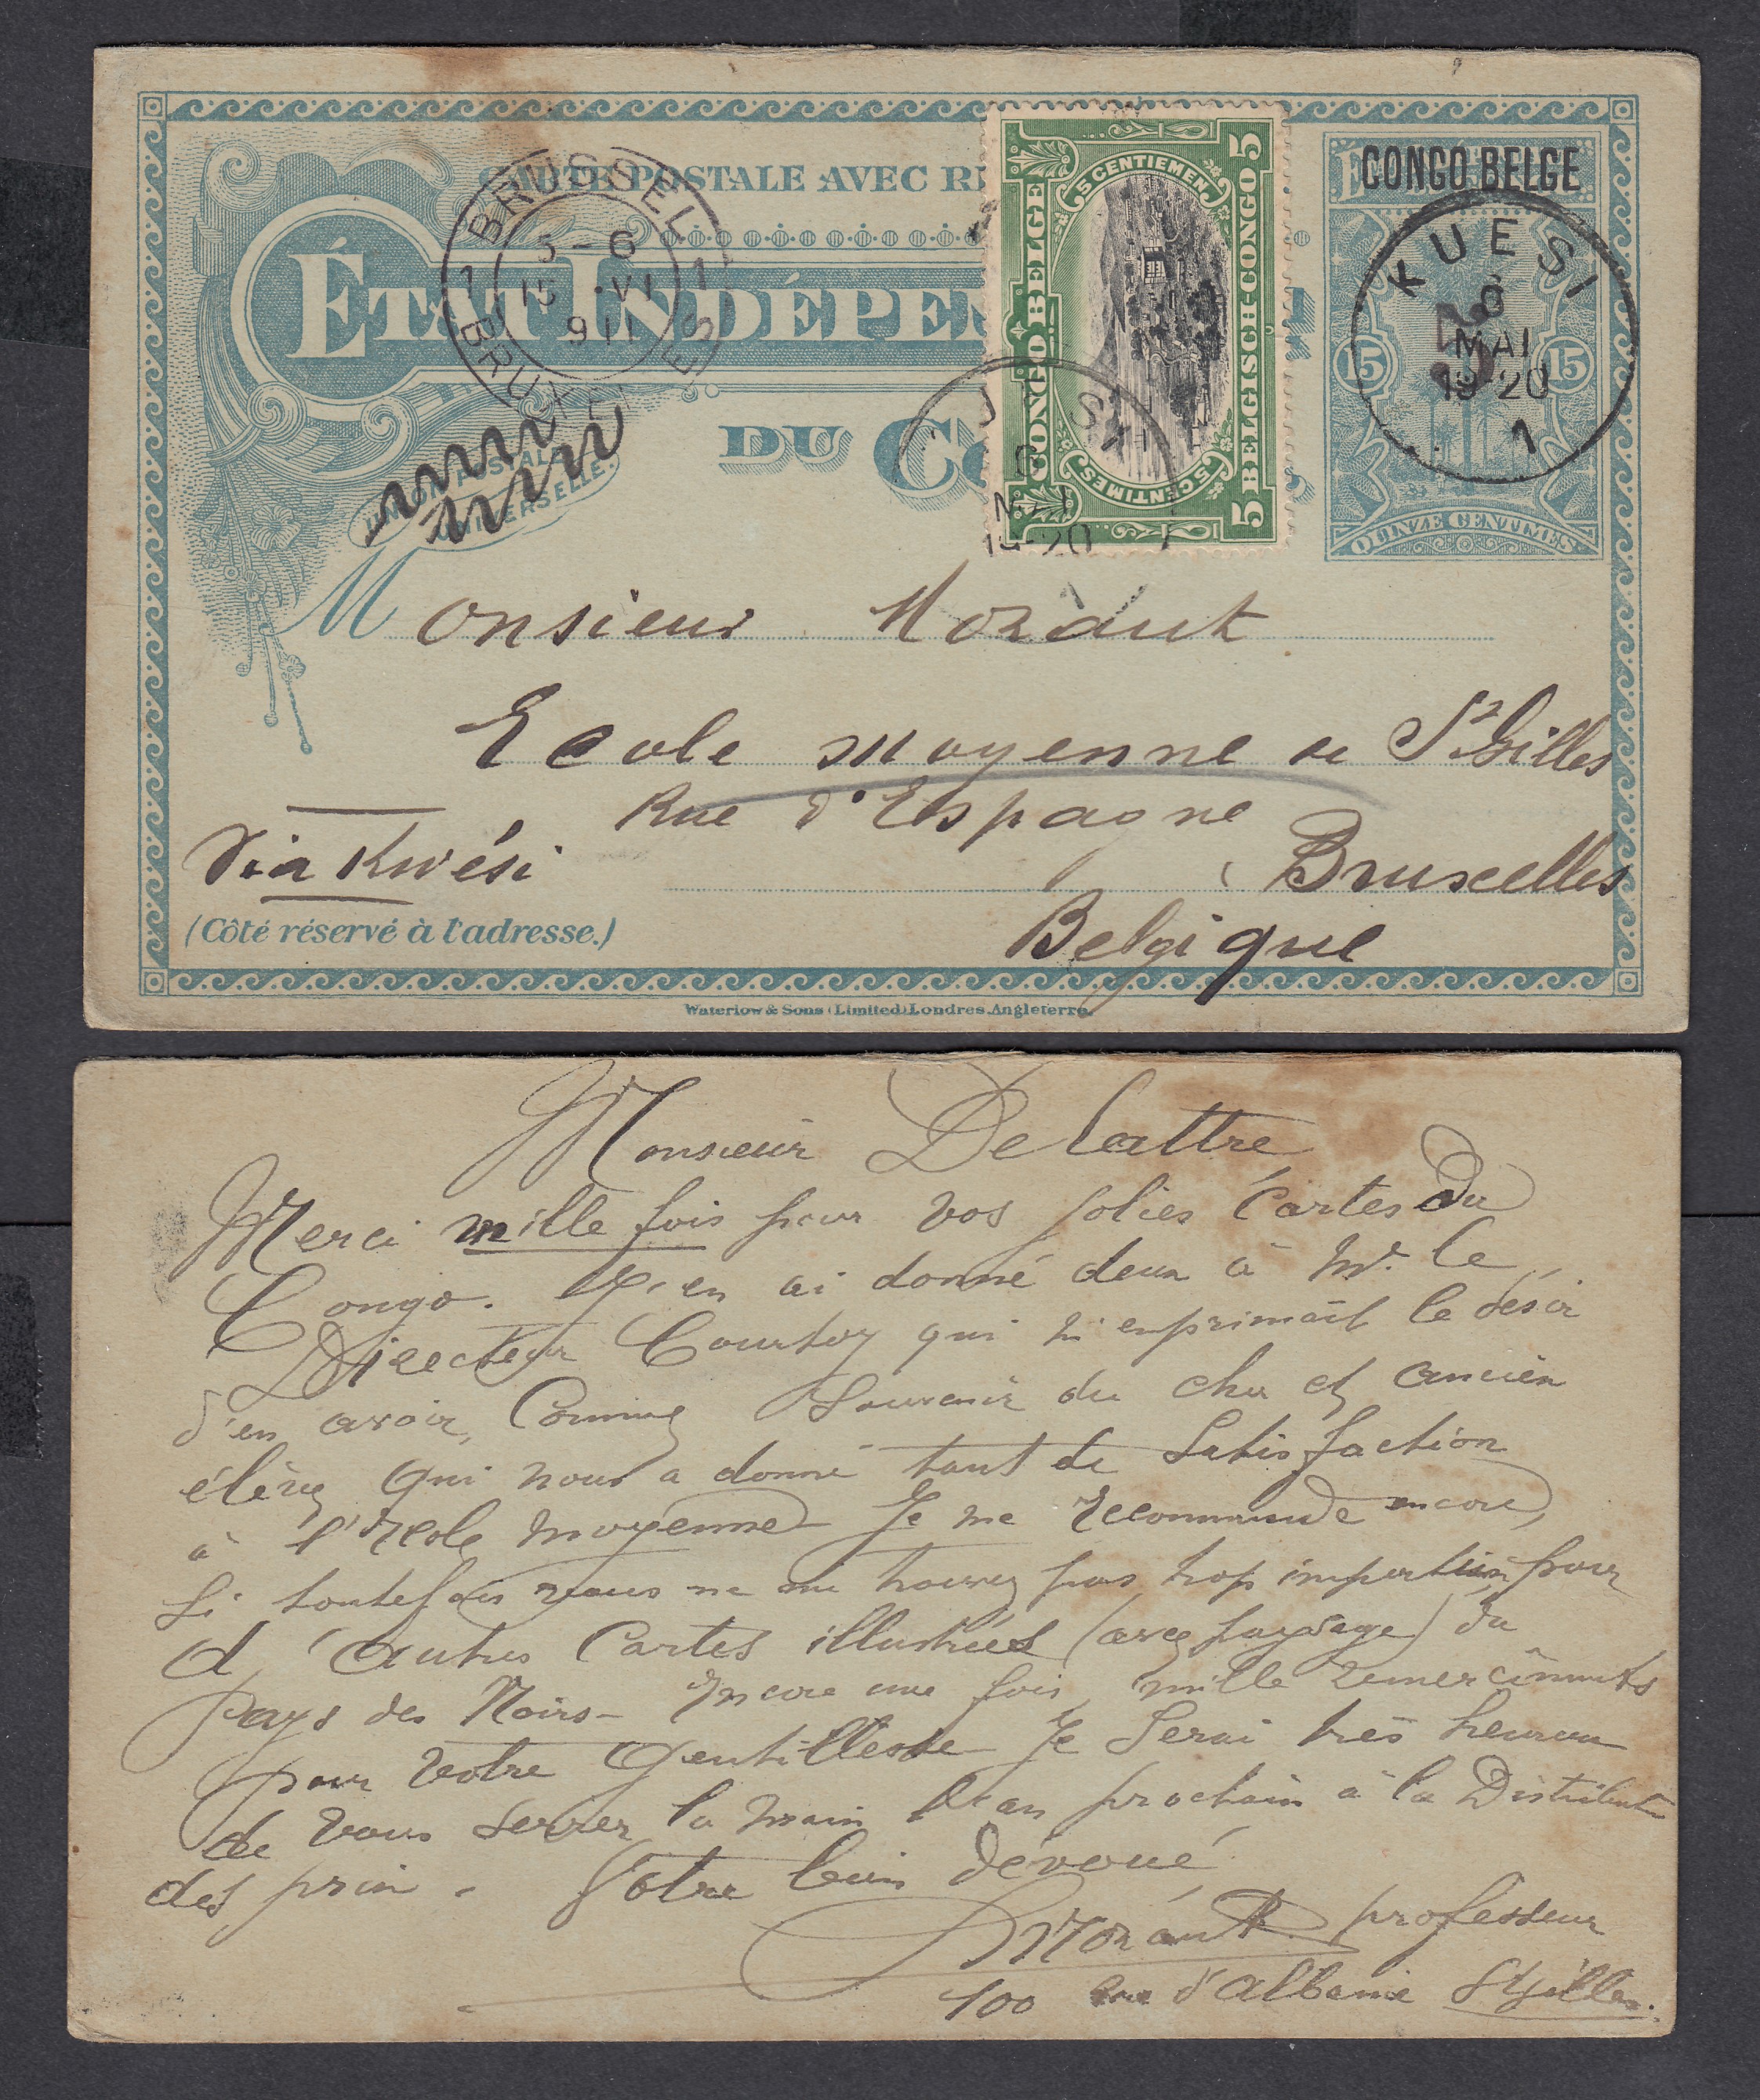 CARTE POSTALE AVEC
ÉTAT INDÉPEN
DU C
UNION POSTALE
UNIVERSELLE.
BRUSSEL
1 1
5-6
15 VI
911
BRUXELLES
CONGO BELGE
5 CENTIEMEN
5 CENTIMES
BELGISCH-CONGO
5 5
CONGO BELGE
KUESI
6
MAI
19-20
1
5
15 15
QUINZE CENTIMES
6
MAI
Monsieur Morauk
Ecole moyenne de St Gilles
Rue d'Espagne
Via Kwési
Bruxelles
(Côté réservé à l'adresse.)
Belgique
Waterlow & Sons (Limited) Londres. Angleterre.
Monsieur Delattre
Merci mille fois pour vos jolies Cartes du
Congo. J'en ai donné deux à Mr. le
Directeur Courtoy qui m'exprimait le désir
d'en avoir, Comme Souvenir du cher et ancien
élève qui nous a donné tant de Satisfaction
à l'Ecole moyenne. Je me recommande encore,
Si toutefois vous ne me trouvez pas trop importun, pour
d'autres Cartes illustrées (avec paysage) du
pays des Noirs - Encore une fois mille remerciments
pour votre Gentillesse. Je Serai très heureux
de vous serrer la main l'an prochain à la Distribution
des prix. Votre bien dévoué
Morauk professeur
100 rue d'Albanie St Gilles.